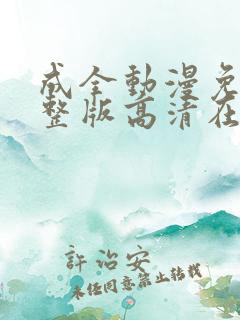 成全動漫免
整版高清在
許治安
未经同意禁止转载